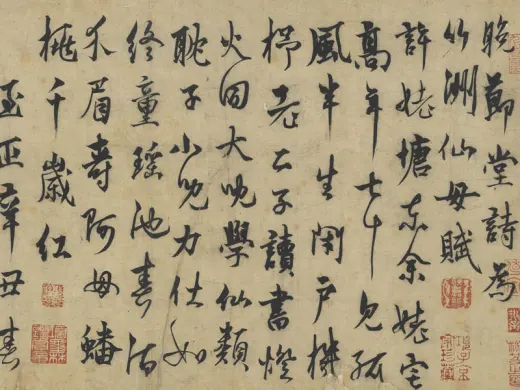 晚節堂詩為
竹洲仙母賦
許姥塘東余姥宅
高年七十見孤
風半生閉戶機
杼老二子讀書燈
火同大兒學仙類
耽子小兒力仕如
終童瑤池春酒
介眉壽阿母蟠
桃千歲紅
至正辛丑春